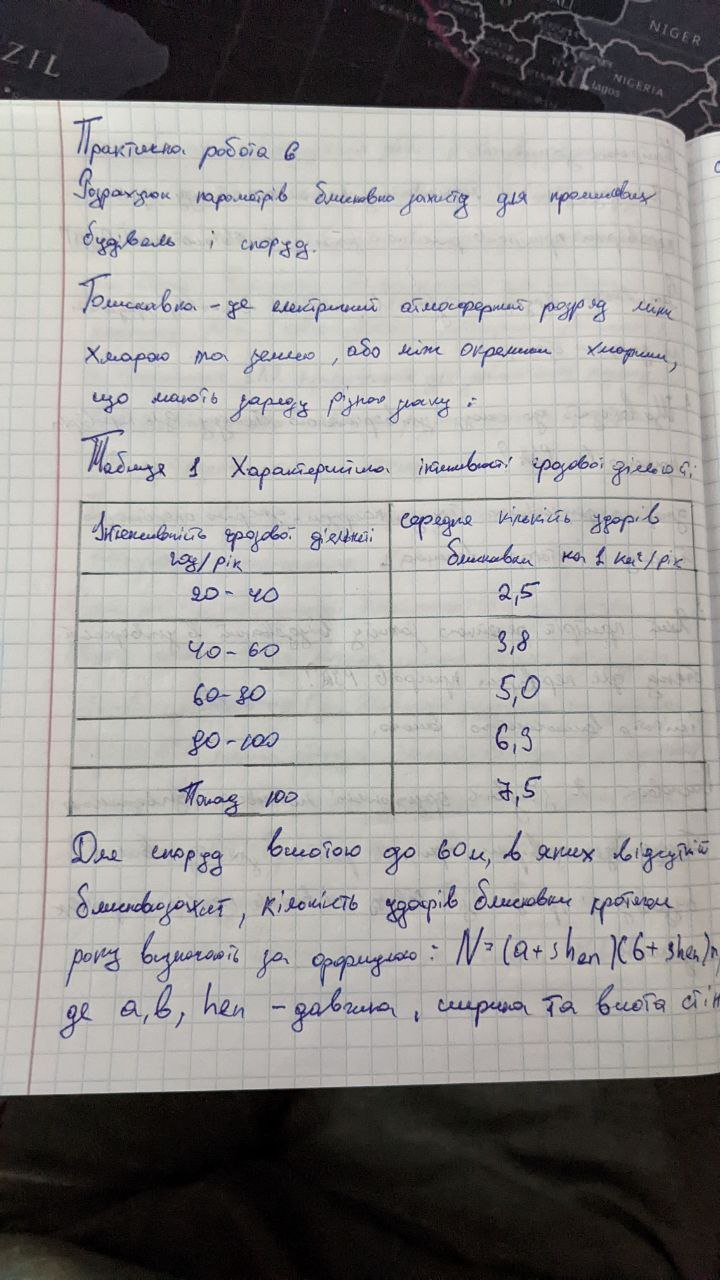 ZIL
NIGER
NIGERIA
Lagos
Практична робота 6
Розрахунок параметрів блискавко захисту для промислових
будівель і споруд.
Блискавка - це електричний атмосферний розряд між
хмарою та землею, або між окремими хмарами,
що мають заряди різного знаку.
Таблиця 1 Характеристика інтенсивності грозової діяльності
Інтенсивність грозової діяльності
год/рік
Середня кількість ударів
блискавки на 1 км²/рік
20-40
2,5
40-60
3,8
60-80
5,0
80-100
6,3
Понад 100
7,5
Для споруд висотою до 60м, в яких відсутній
блискавкозахист, кількість ударів блискавки протягом
року визначають за формулою: N=(a+3hеп)(б+3hеп)n
де а,в, hеп - довжина, ширина та висота стін